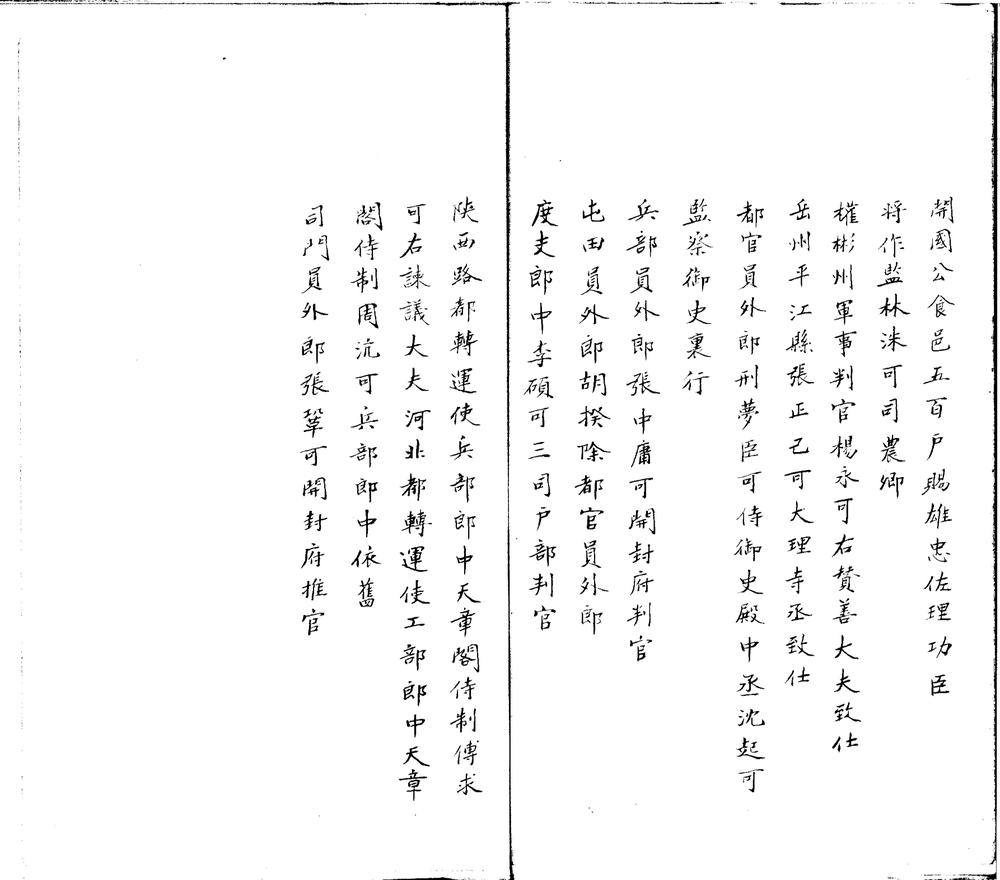 開國公食邑五百戶賜雄忠佐理功臣
將作監林洙可司農卿
權彬州軍事判官楊永可右賛善大夫致仕
岳州平江縣張正己可大理寺丞致仕
都官員外郎刑夢臣可侍御史殿中丞沈起可
監察御史裏行
兵部員外郎張中庸可開封府判官
屯田員外郎胡揆除都官員外郎
度支郎中李碩可三司戶部判官
陝西路都轉運使兵部郎中天章閣侍制傅求
可右諫議大夫河北都轉運使工部郎中天章
閣侍制周沆可兵部郎中依舊
司門員外郎張鞏可開封府推官